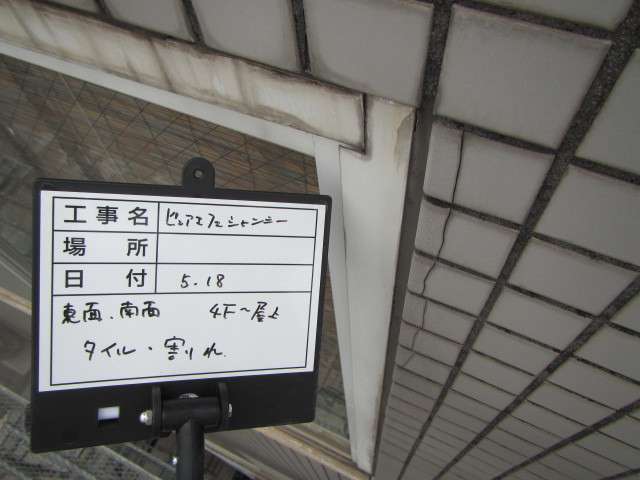 工事名 ピュアエフェシャンミー
場所
日付 5.18
東面、南面 4F〜屋上
タイル・割れ